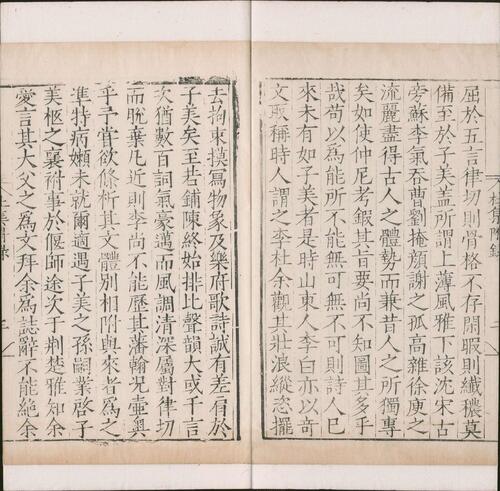 屈於五言律切則骨格不存閑暇則纖穠莫
備至於子美盖所謂上薄風雅下該沈宋古
旁蘇李氣吞曹劉掩顔謝之孤高雜徐庾之
流麗盡得古人之體勢而兼昔人之所獨專
矣如使仲尼考鍜其旨要尚不知圖其多乎
哉苟以為能所不能無可無不可則詩人已
來未有如子美者是時山東人李白亦以奇
文取稱時人謂之李杜余觀其壯浪縱恣擺
去拘束摸寫物象及樂府歌詩誠有差肩於
子美矣至若鋪陳終始排比聲韻大或千言
次猶數百詞氣豪邁而風調清深屬對律切
而脫棄凡近則李尚不能歷其藩翰况壼奧
乎予嘗欲條析其文體別相附與來者為之
準特病嬾未就爾適遇子美之孫嗣業啓子
美柩之襄祔事於偃師途次于荆楚雅知余
愛言其大父之為文拜余為誌辭不能絶余